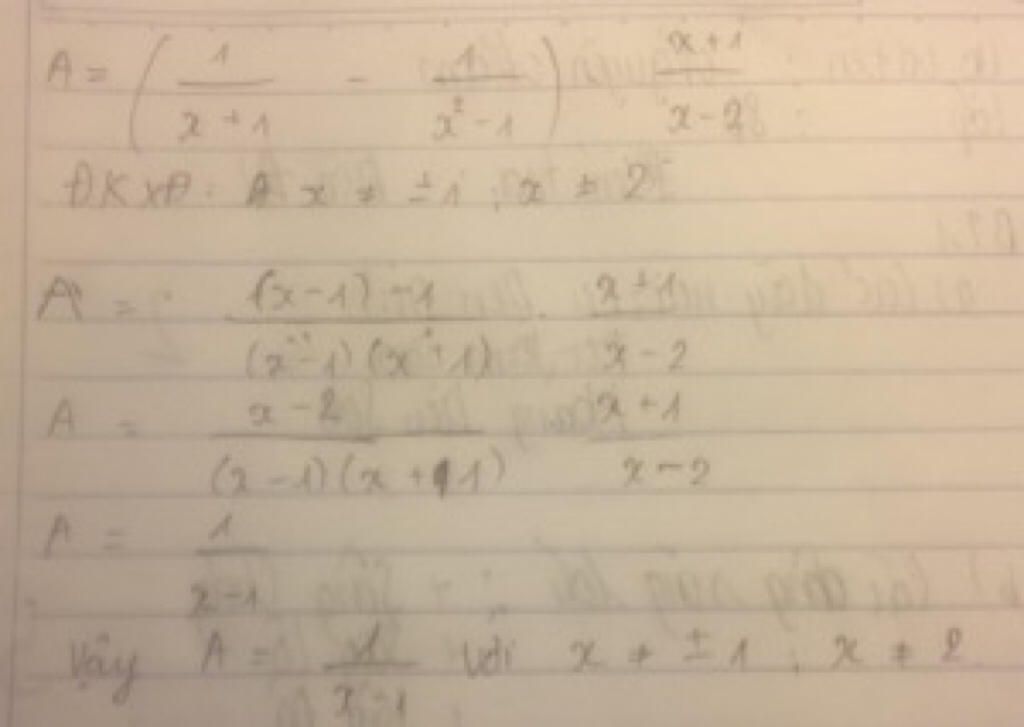 A = ( 1/(x + 1) - 1/(x² - 1) ) . (x + 1)/(x - 2)
ĐKXĐ: A x ≠ ±1 ; x ≠ 2
A = ((x - 1) - 1)/((x - 1)(x + 1)) . (x + 1)/(x - 2)
A = (x - 2)/((x - 1)(x + 1)) . (x + 1)/(x - 2)
A = 1/(x - 1)
Vậy A = 1/(x - 1) với x ≠ ±1 ; x ≠ 2